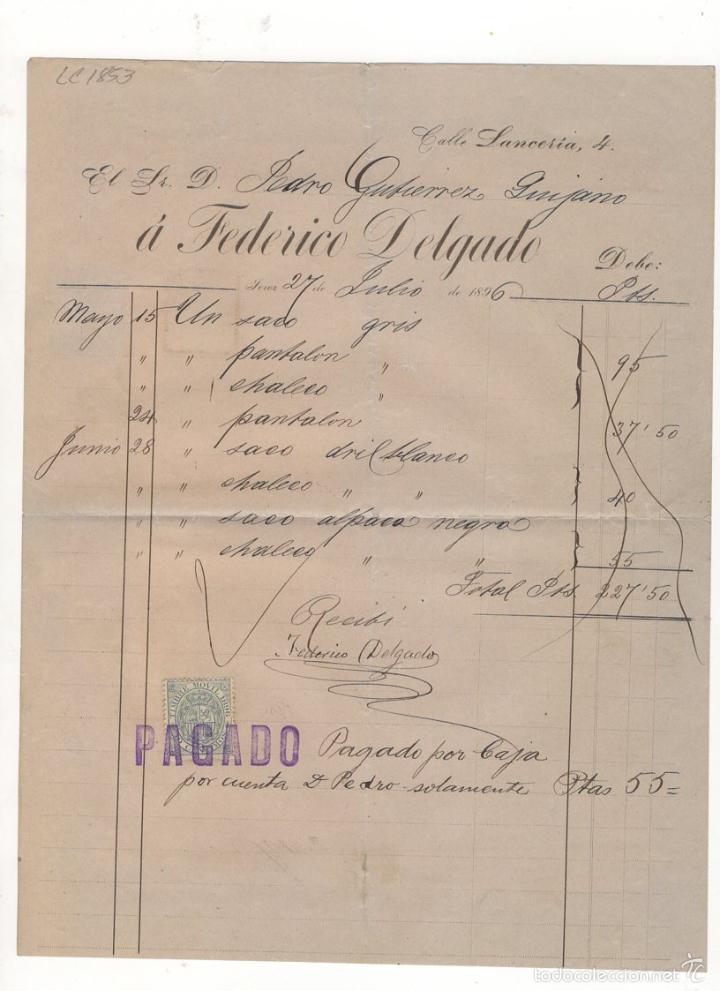 LC1853
Calle Lancería, 4.
El Sr. D. Pedro Gutierrez Quijano
á Federico Delgado
Debe:
Jerez 27 de Julio de 1896 Pts.
Mayo 15 Un saco gris
" " pantalon " 95
" " chaleco "
24 " pantalon 37'50
Junio 28 " saco dril blanco
" " chaleco " " 40
" " saco alpaca negra
" " chaleco " " 55
Total Pts 227'50
Recibí
Federico Delgado
TIMBRE MOVIL 1896
PAGADO Pagado por Caja
por cuenta D Pedro solamente Ptas 55=
todocoleccion.net